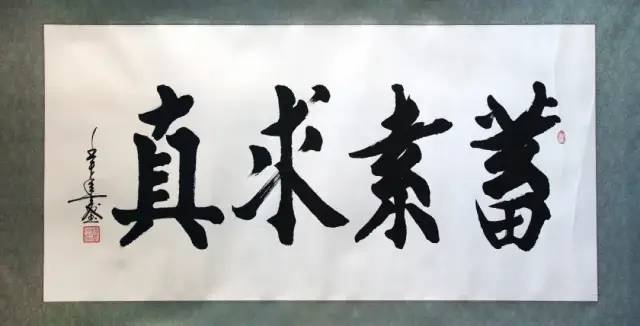 蓄素求真